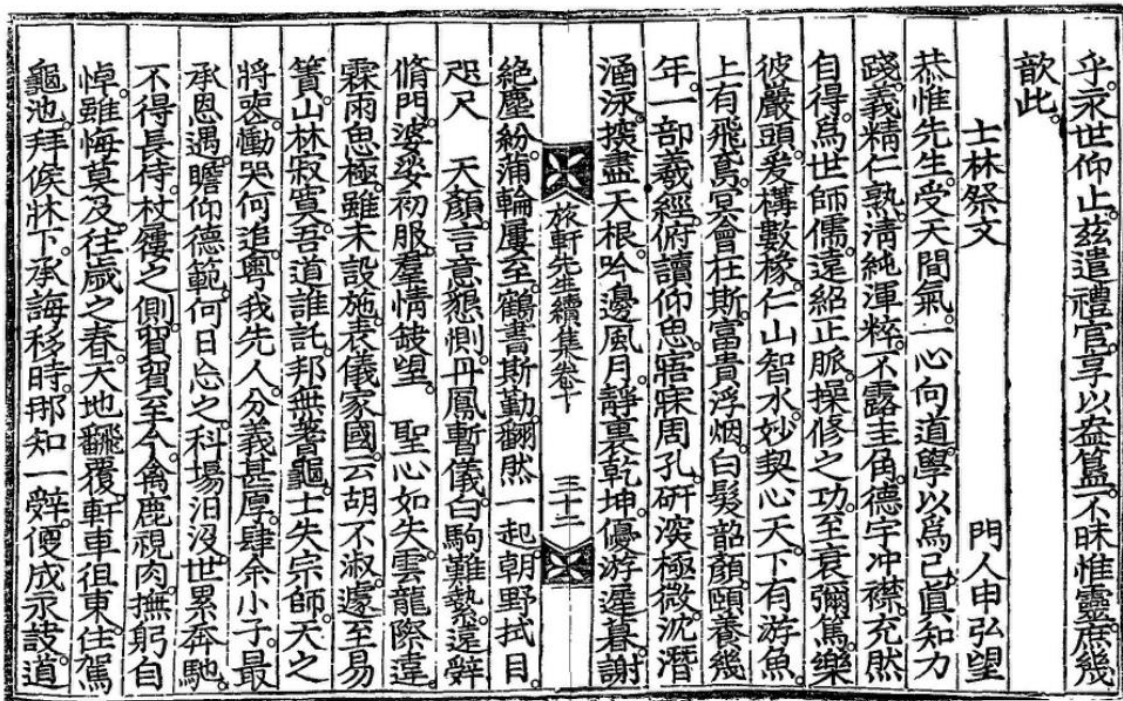 乎。永世仰止。玆遣禮官。享以盎簋。不昧惟靈。庶幾
歆此。
士林祭文 門人申弘望
恭惟先生。受天間氣。一心向道。學以爲己。眞知力
踐。義精仁熟。淸純渾粹。不露圭角。德宇冲襟。充然
自得。爲世師儒。遠紹正脈。操修之功。至衰彌篤。樂
彼巖頭。爰構數椽。仁山智水。妙契心天。下有游魚。
上有飛鳶。冥會在斯。富貴浮烟。白髮韶顔。頤養幾
年。一部羲經。俯讀仰思。寤寐周孔。硏深極微。沈潛
涵泳。探盡天根。吟邊風月。靜裏乾坤。優游遲暮。謝
旅軒先生續集卷十 三十二
絶塵紛。蒲輪屢至。鶴書斯勤。翻然一起。朝野拭目。
咫尺 天顔。言意懇惻。丹鳳暫儀。白駒難縶。遠辭
脩門。婆娑初服。羣情缺望。 聖心如失。雲龍際違。
霖雨思極。雖未設施。表儀家國。云胡不淑。遽至易
簀。山林寂寞。吾道誰託。邦無蓍龜。士失宗師。天之
將喪。慟哭何追。粤我先人。分義甚厚。肆余小子。最
承恩遇。瞻仰德範。何日忘之。科場汨沒。世累奔馳。
不得長侍。杖屨之側。貿貿至今。禽鹿視肉。撫躬自
悼。雖悔莫及。往歲之春。天地飜覆。軒車徂東。住駕
龜池。拜候牀下。承誨移時。那知一辭。便成永訣。道